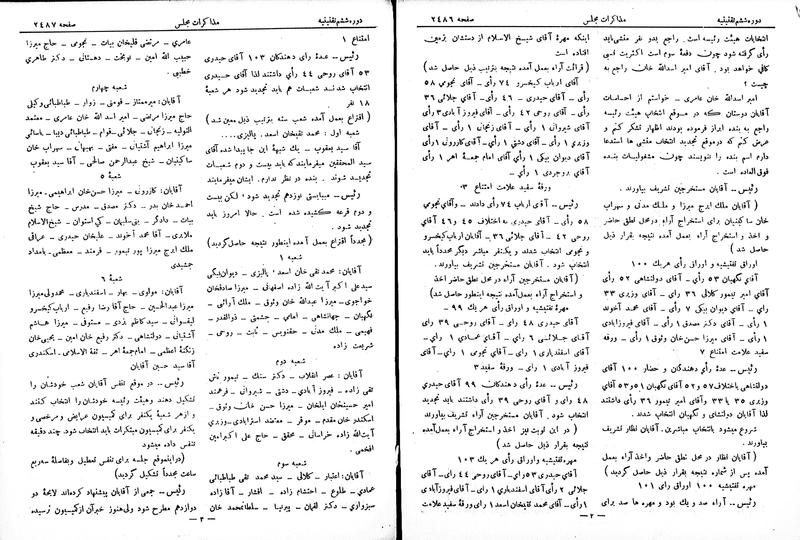 دوره ششم تقنینیه
مذاکرات مجلس
صفحه ۲۴۸۶
انتخابات هیئت رئیسه است . راجع بدو نفر منشی باید
رأی گرفته شود چون دفعهٔ سوم است اکثریت نسبی
کافی خواهد بود . آقای امیر اسدالله خان راجع به
چیست ؟
امیر اسدالله خان عامری - خواستم از احساسات
آقایان دوستان که در موقع انتخاب هیئت رئیسه
راجع به بنده ابراز فرموده بودند اظهار تشکر کنم و
عرض کنم که در موقع تجدید انتخاب منشی ها استدعا
دارم اسم بنده را ننویسند چون مشغولیات بنده
فوق العاده است .
رئیس - آقایان مستخرجین تشریف بیاورند .
( آقایان ملک ایرج میرزا و ملک مدنی و سهراب
خان ساگینیان برای استخراج آراء در محل نطق حاضر
و اخذ و استخراج آراء بعمل آمده نتیجه بقرار ذیل
حاصل شد )
اوراق تفتیشیه و اوراق رأی هر یک ۱۰۰
آقای نگهبان ۵۳ رأی - آقای دولتشاهی ۵۲ رأی
آقای امیر تیمور کلالی ۳۶ رأی - آقای وزیری ۳۳
رأی - آقای دیوان بیگی ۷ رأی - آقای محمد آخوند
۱ رأی - آقای دکتر مصدق ۱ رأی - آقای فیروزآبادی
۱ رأی - آقای میرزا حسن خان وثوق ۱ رأی - ورقه
سفید علامت امتناع ۷
رئیس - عدهٔ رأی دهندگان و حضار ۱۰۰ آقای
دولتشاهی باختلاف ۵۷ و ۵۲ آقای نگهبان ۵۱ و ۵۳ آقای
وزیری ۳۵ یا ۳۳ وآقای امیر تیمور ۳۶ رأی داشتند
لذا آقایان دولتشاهی و نگهبان انتخاب شدند.
شروع میشود بانتخاب مباشرین. آقایان نظار تشریف
بیاورند .
( آقایان نظار در محل نطق حاضر واخذ آراء بعمل
آمده پس از شماره نتیجه بقرار ذیل حاصل گردید )
مهره تفتیشیه ۱۰۰ اوراق رأی ۱۰۱
رئیس - آراء صد و یک بود و مهره ها صد برای
اینکه مهرهٔ آقای شیخ الاسلام از دستشان بزمین
افتاده است
( قرائت آراء بعمل آمده نتیجه بترتیب ذیل حاصل شد )
آقای ارباب کیخسرو ۷۴ رأی - آقای نجومی ۵۸
رأی - آقای حیدری ۴۶ رأی - آقای جلائی ۳۶
رأی - آقای روحی ۴۲ رأی - آقای فیروز آبادی ۳ رأی
آقای شیروانی ۱ رأی - آقای زنجانی ۱ رأی - آقای
وزیری ۱ رأی - آقای دشتی ۱ رأی - آقای کازرونی ۱ رأی
آقای دیوان بیگی ۱ رأی آقای امام جمعهٔ اهر ۱ رأی
آقای بروجردی ۱ رأی -
ورقهٔ سفید علامت امتناع ۳
رئیس - آقای ارباب ۷۴ رأی دادند . وآقای نجومی
۵۸ رأی - آقای حیدری به اختلاف ۴۵ و ۴۶ آقای
روحی ۴۲ - آقای جلائی ۳۶ - آقایان ارباب کیخسرو
و نجومی انتخاب شدند ویکنفر مباشر دیگر مجدداً باید
انتخاب شود . آقایان مستخرجین تشریف بیاورند .
( آقایان مستخرجین آراء در محل نطق حاضر اخذ
و استخراج آراء بعمل آمده نتیجه اینطور حاصل شد)
مهرهٔ تفتیشیه و اوراق رأی هر یک ۹۹ -
آقای حیدری ۴۸ رأی - آقای روحی ۳۹ رأی
آقای جلائی ۶ رأی - آقای عمادی ۱ رأی -
آقای اسفندیاری ۱ رأی - آقای نجومی ۱ رأی - آقای
فیروز آبادی ۱ رأی - ورقهٔ سفید ۳
رئیس - عدهٔ رأی دهندگان ۹۹ آقای حیدری
۴۸ رأی و آقای روحی ۳۹ رأی داشتند باید تجدید
انتخاب شود . آقایان مستخرجین آراء بیاورند
( در این نوبت نیز اخذ و استخراج آراء بعمل آمده
نتیجه بقرار ذیل حاصل شد )
مهره تفتیشیه و اوراق رأی هر یک ۱۰۳
آقای حیدری ۵۳ رأی - آقای روحی ۴۴ رأی - آقای
جلائی ۲ رأی آقای اسفندیاری ۱ رأی - آقای فیروزآبادی
۱ رأی - آقای محمد تقیخان اسعد ۱ رأی - ورقه سفید علامت
- ۲ -
دوره ششم تقنینیه
مذاکرات مجلس
صفحه ۲۴۸۷
امتناع ۱
رئیس - عدهٔ رأی دهندگان ۱۰۳ آقای حیدری
۵۳ آقای روحی ۴۴ رأی داشتند لذا آقای حیدری
انتخاب شدند شعبات هم باید تجدید شود هر شعبهٔ
۱۸ نفر
( اقتراع بعمل آمده شعب سته بترتیب ذیل معین شد )
شعبه اول : محمد تقیخان اسعد. یالیزی...
آقا سید یعقوب - یک شبههٔ این جا پیدا شده آقای
سید المحققین میفرمایند که باید بیست و دوم شعبات
تجدید شوند . بنده در نظر ندارم. ایشان میفرمایند
رئیس - میبایستی نوزدهم تجدید شود . لکن بیست
و دوم قرعه کشیده شده است . حالا امروز باید
تجدید شود.
(مجدداً اقتراع بعمل آمده اینطور نتیجه حاصل گردید)
شعبه ۱
آقایان: محمد تقی خان اسعد - یالیزی - دیوان بیگی
سید علی اکبر آیت الله زاده اصفهانی - میرزا صادقخان
خواجوی- میرزا عبدالله خان وثوق - ملک آرائی -
نگهبان - جهانشاهی - امامی - جمشق - ذوالقدر -
فهیمی - ملک مدنی - حقنویس - ثابت - روحی -
شریعت زاده
شعبه دوم
آقایان : عصر انقلاب - دکتر سنگ - تیمور تاش
تقی زاده - فیروز آبادی - دشتی - شیروانی - فرهمند
امیر حسینخان ایلخان - میرزا حسن خان وثوق -
اسکندر خان مقدم - موقر - معتضد استرآبادی - وزیری
آیت الله زاده خراسانی - محقق - حاج علی اکبر امین
افخمی .
شعبه سوم
آقایان: اعتبار - کلالی - سید محمد تقی طباطبائی
عمادی - طلوع - احتشام زاده - افشار - آقا زاده
سبزواری - دکتر لقمان - پیرنیا - سلطانمحمد خان
عامری - مرتضی قلیخان بیات - نجومی - حاج میرزا
حبیب الله امین - نوبخت - دهستانی - دکتر طاهری
خطیبی .
شعبه چهارم
آقایان : میر ممتاز - فومنی - زوار - طباطبائی وکیل
حاج میرزا مرتضی - امیر اسدالله خان عامری - معتمد
التولیه - زنجانی - جلائی - قوام - طباطبائی دیبا - یاسائی
میرزا ابراهیم آشتیانی - مفتی - بهبهانی - سهراب خان
ساگینیان - شیخ عبدالرحمن صالحی - آقا سید یعقوب
شعبه ۵
آقایان: کازرونی - میرزا حسن خان ابراهیمی - میرزا
احمد خان بدر - دکتر مصدق - مدرس - حاج شیخ
بیات - دادگر - بنی سلیمان - کی استوان - شیخ الاسلام
ملایری - آقا محمد آخوند - علیخان حیدری - عراقی
ملک ایرج میرزا پور تیمور - فرمند - معظمی - بامداد
جمشیدی
شعبه ۶
آقایان : مولوی - بهار - اسفندیاری - محمد ولی میرزا
میرزا عبدالحسین - حاج آقا رضا رفیع - ارباب کیخسرو
لیقوانی - سید کاظم یزدی - مستوفی - میرزا هاشم
آشتیانی - دولتشاهی - دکتر رفیع خان امین - یحیی خان
زنگنه اعظمی - امام جمعهٔ اهر - ثقة الاسلامی - اسکندری
آقا سید حسین آقایان
رئیس - در موقع تنفس آقایان شعب خودشان را
تشکیل دهند وهیئت رئیسه خودشان را انتخاب کنند
و از هر شعبهٔ یکنفر برای کمیسیون عرایض و مرخصی و
یکنفر برای کمیسیون مبتکرات باید انتخاب شود. چند دقیقه
تنفس داده میشود
(در اینموقع جلسه برای تنفس تعطیل وبفاصلهٔ سه ربع
ساعت مجدداً تشکیل گردید)
رئیس - جمعی از آقایان پیشنهاد کرده اند لایحهٔ دو
دوازدهم مطرح شود ولی هنوز خبر آن از کمیسیون نرسیده
- ۳ -